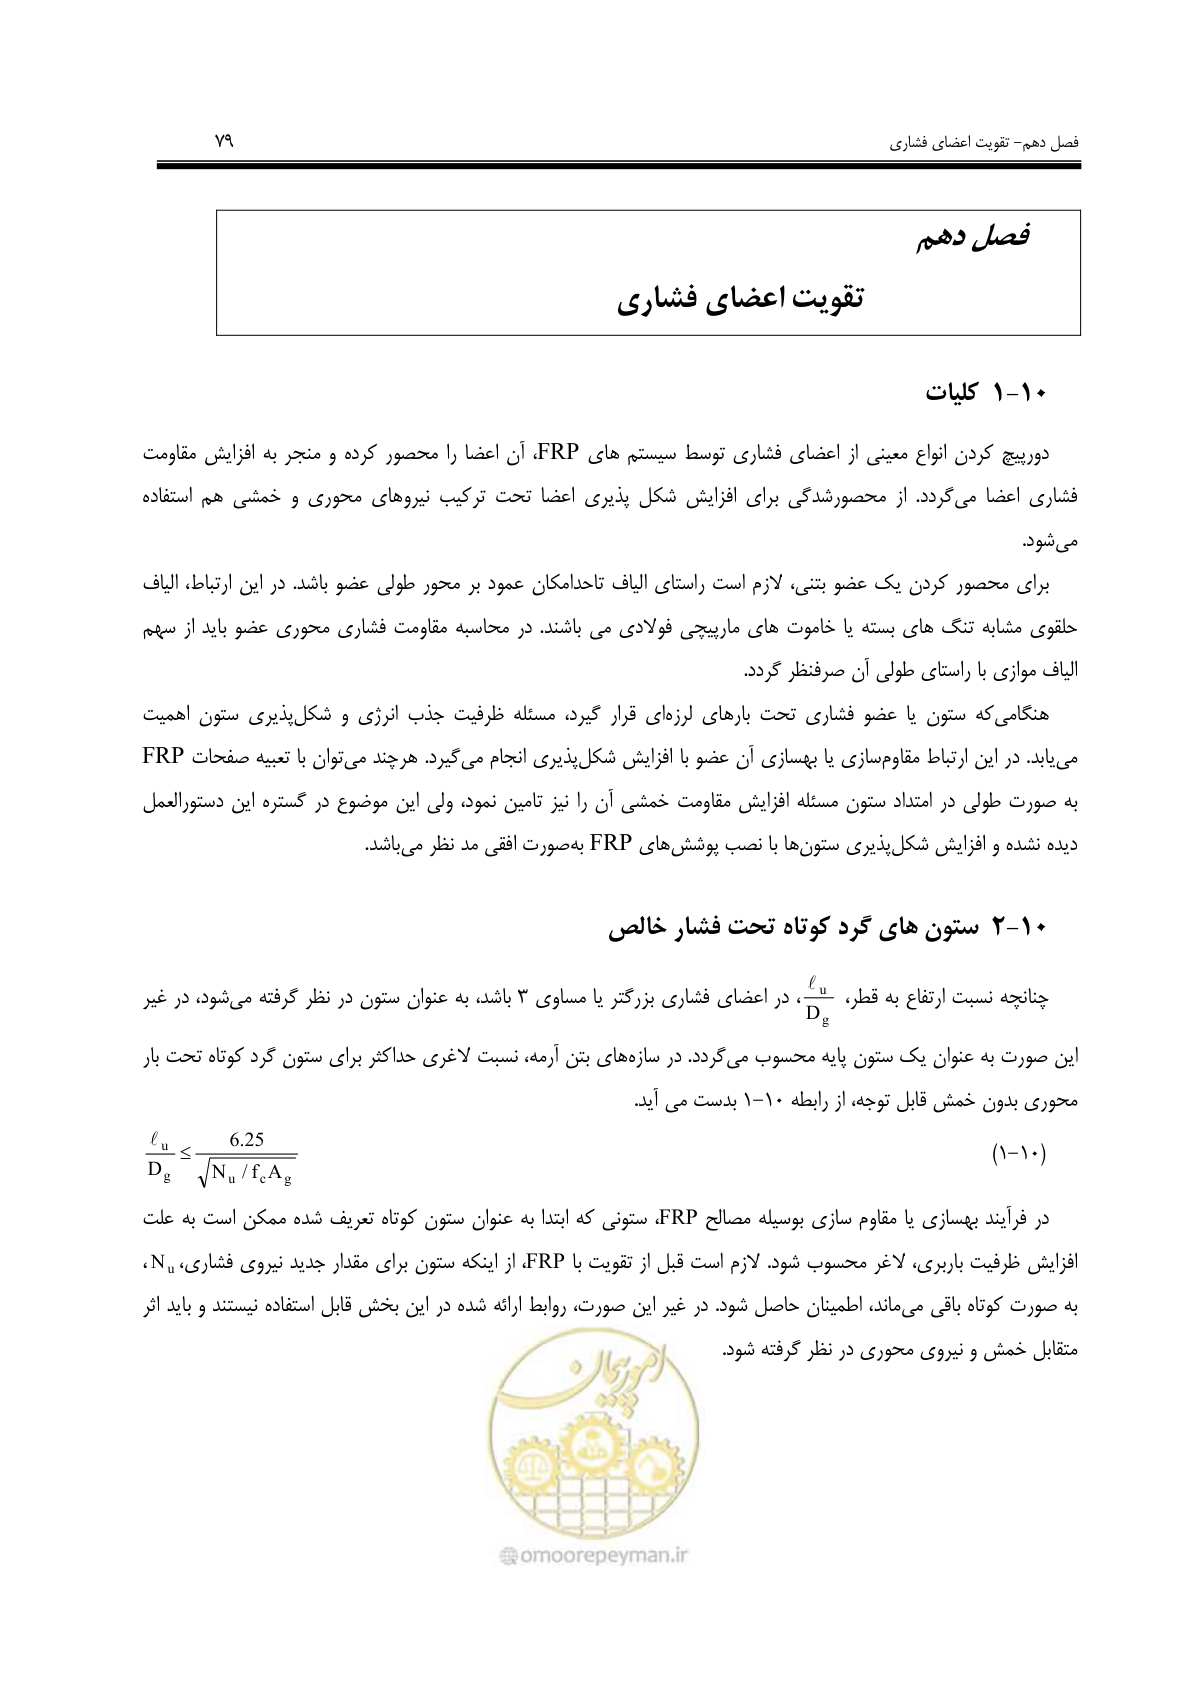 فصل دهم– تقویت اعضای فشاری ۷۹
فصل دهم
تقویت اعضای فشاری
۱۰–۱ کلیات
دورپیچ کردن انواع معینی از اعضای فشاری توسط سیستم های FRP، آن اعضا را محصور کرده و منجر به افزایش مقاومت
فشاری اعضا می‌گردد. از محصورشدگی برای افزایش شکل پذیری اعضا تحت ترکیب نیروهای محوری و خمشی هم استفاده
می‌شود.
برای محصور کردن یک عضو بتنی، لازم است راستای الیاف تاحدامکان عمود بر محور طولی عضو باشد. در این ارتباط، الیاف
حلقوی مشابه تنگ های بسته یا خاموت های مارپیچی فولادی می باشند. در محاسبه مقاومت فشاری محوری عضو باید از سهم
الیاف موازی با راستای طولی آن صرفنظر گردد.
هنگامی‌که ستون یا عضو فشاری تحت بارهای لرزه‌ای قرار گیرد، مسئله ظرفیت جذب انرژی و شکل‌پذیری ستون اهمیت
می‌یابد. در این ارتباط مقاوم‌سازی یا بهسازی آن عضو با افزایش شکل‌پذیری انجام می‌گیرد. هرچند می‌توان با تعبیه صفحات FRP
به صورت طولی در امتداد ستون مسئله افزایش مقاومت خمشی آن را نیز تامین نمود، ولی این موضوع در گستره این دستورالعمل
دیده نشده و افزایش شکل‌پذیری ستون‌ها با نصب پوشش‌های FRP به‌صورت افقی مد نظر می‌باشد.
۱۰–۲ ستون های گرد کوتاه تحت فشار خالص
چنانچه نسبت ارتفاع به قطر، ℓu/Dg، در اعضای فشاری بزرگتر یا مساوی ۳ باشد، به عنوان ستون در نظر گرفته می‌شود، در غیر
این صورت به عنوان یک ستون پایه محسوب می‌گردد. در سازه‌های بتن آرمه، نسبت لاغری حداکثر برای ستون گرد کوتاه تحت بار
محوری بدون خمش قابل توجه، از رابطه ۱۰–۱ بدست می آید.
(۱۰–۱) ℓu/Dg ≤ 6.25/√(Nu / fcAg)
در فرآیند بهسازی یا مقاوم سازی بوسیله مصالح FRP، ستونی که ابتدا به عنوان ستون کوتاه تعریف شده ممکن است به علت
افزایش ظرفیت باربری، لاغر محسوب شود. لازم است قبل از تقویت با FRP، از اینکه ستون برای مقدار جدید نیروی فشاری، Nu،
به صورت کوتاه باقی می‌ماند، اطمینان حاصل شود. در غیر این صورت، روابط ارائه شده در این بخش قابل استفاده نیستند و باید اثر
متقابل خمش و نیروی محوری در نظر گرفته شود.
امورپیمان
omoorepeyman.ir